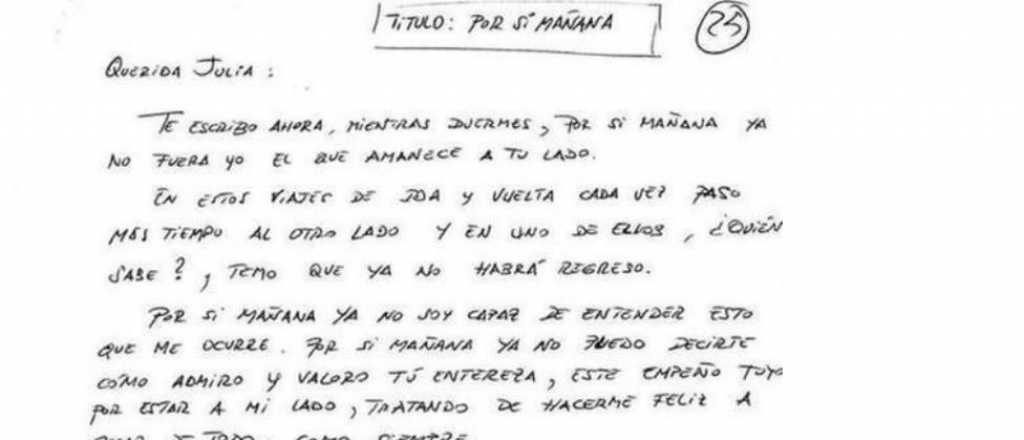 TITULO: POR SI MAÑANA
25
QUERIDA JULIA:
TE ESCRIBO AHORA, MIENTRAS DUERMES, POR SI MAÑANA YA
NO FUERA YO EL QUE AMANECE A TU LADO.
EN ESTOS VIAJES DE IDA Y VUELTA CADA VEZ PASO
MÁS TIEMPO AL OTRO LADO Y EN UNO DE ELLOS, ¿QUIÉN
SABE?, TEMO QUE YA NO HABRÁ REGRESO.
POR SI MAÑANA YA NO SOY CAPAZ DE ENTENDER ESTO
QUE ME OCURRE. POR SI MAÑANA YA NO PUEDO DECIRTE
COMO ADMIRO Y VALORO TÚ ENTEREZA, ESTE EMPEÑO TUYO
POR ESTAR A MI LADO, TRATANDO DE HACERME FELIZ A
PESAR DE TODO, COMO SIEMPRE.